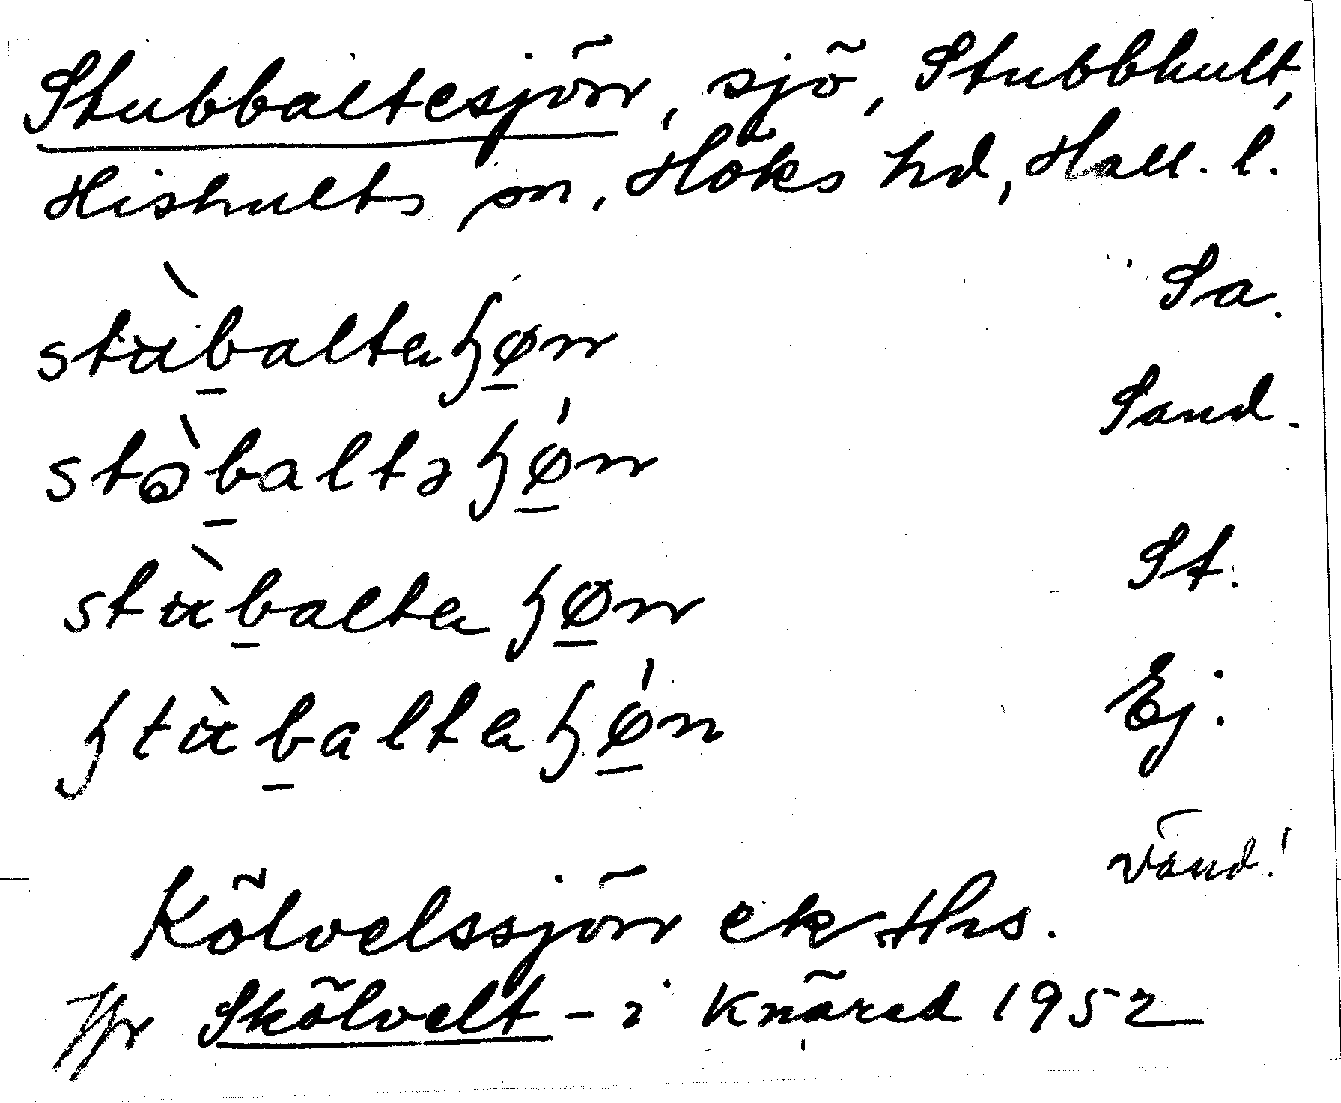 Stubbaltesjön, sjö, Stubbhult,
Hishults sn, Höks hd, Hall. l.
Sa.
stùbaltaɧøn
Sand.
stòbaltəɧǿn
St.
stùbalta ɧøn
Ej.
ɧtùbaltaɧǿn
Vänd!
Kölvelssjön ek Hrs.
Jfr Skölvelt - i Knäred 1952